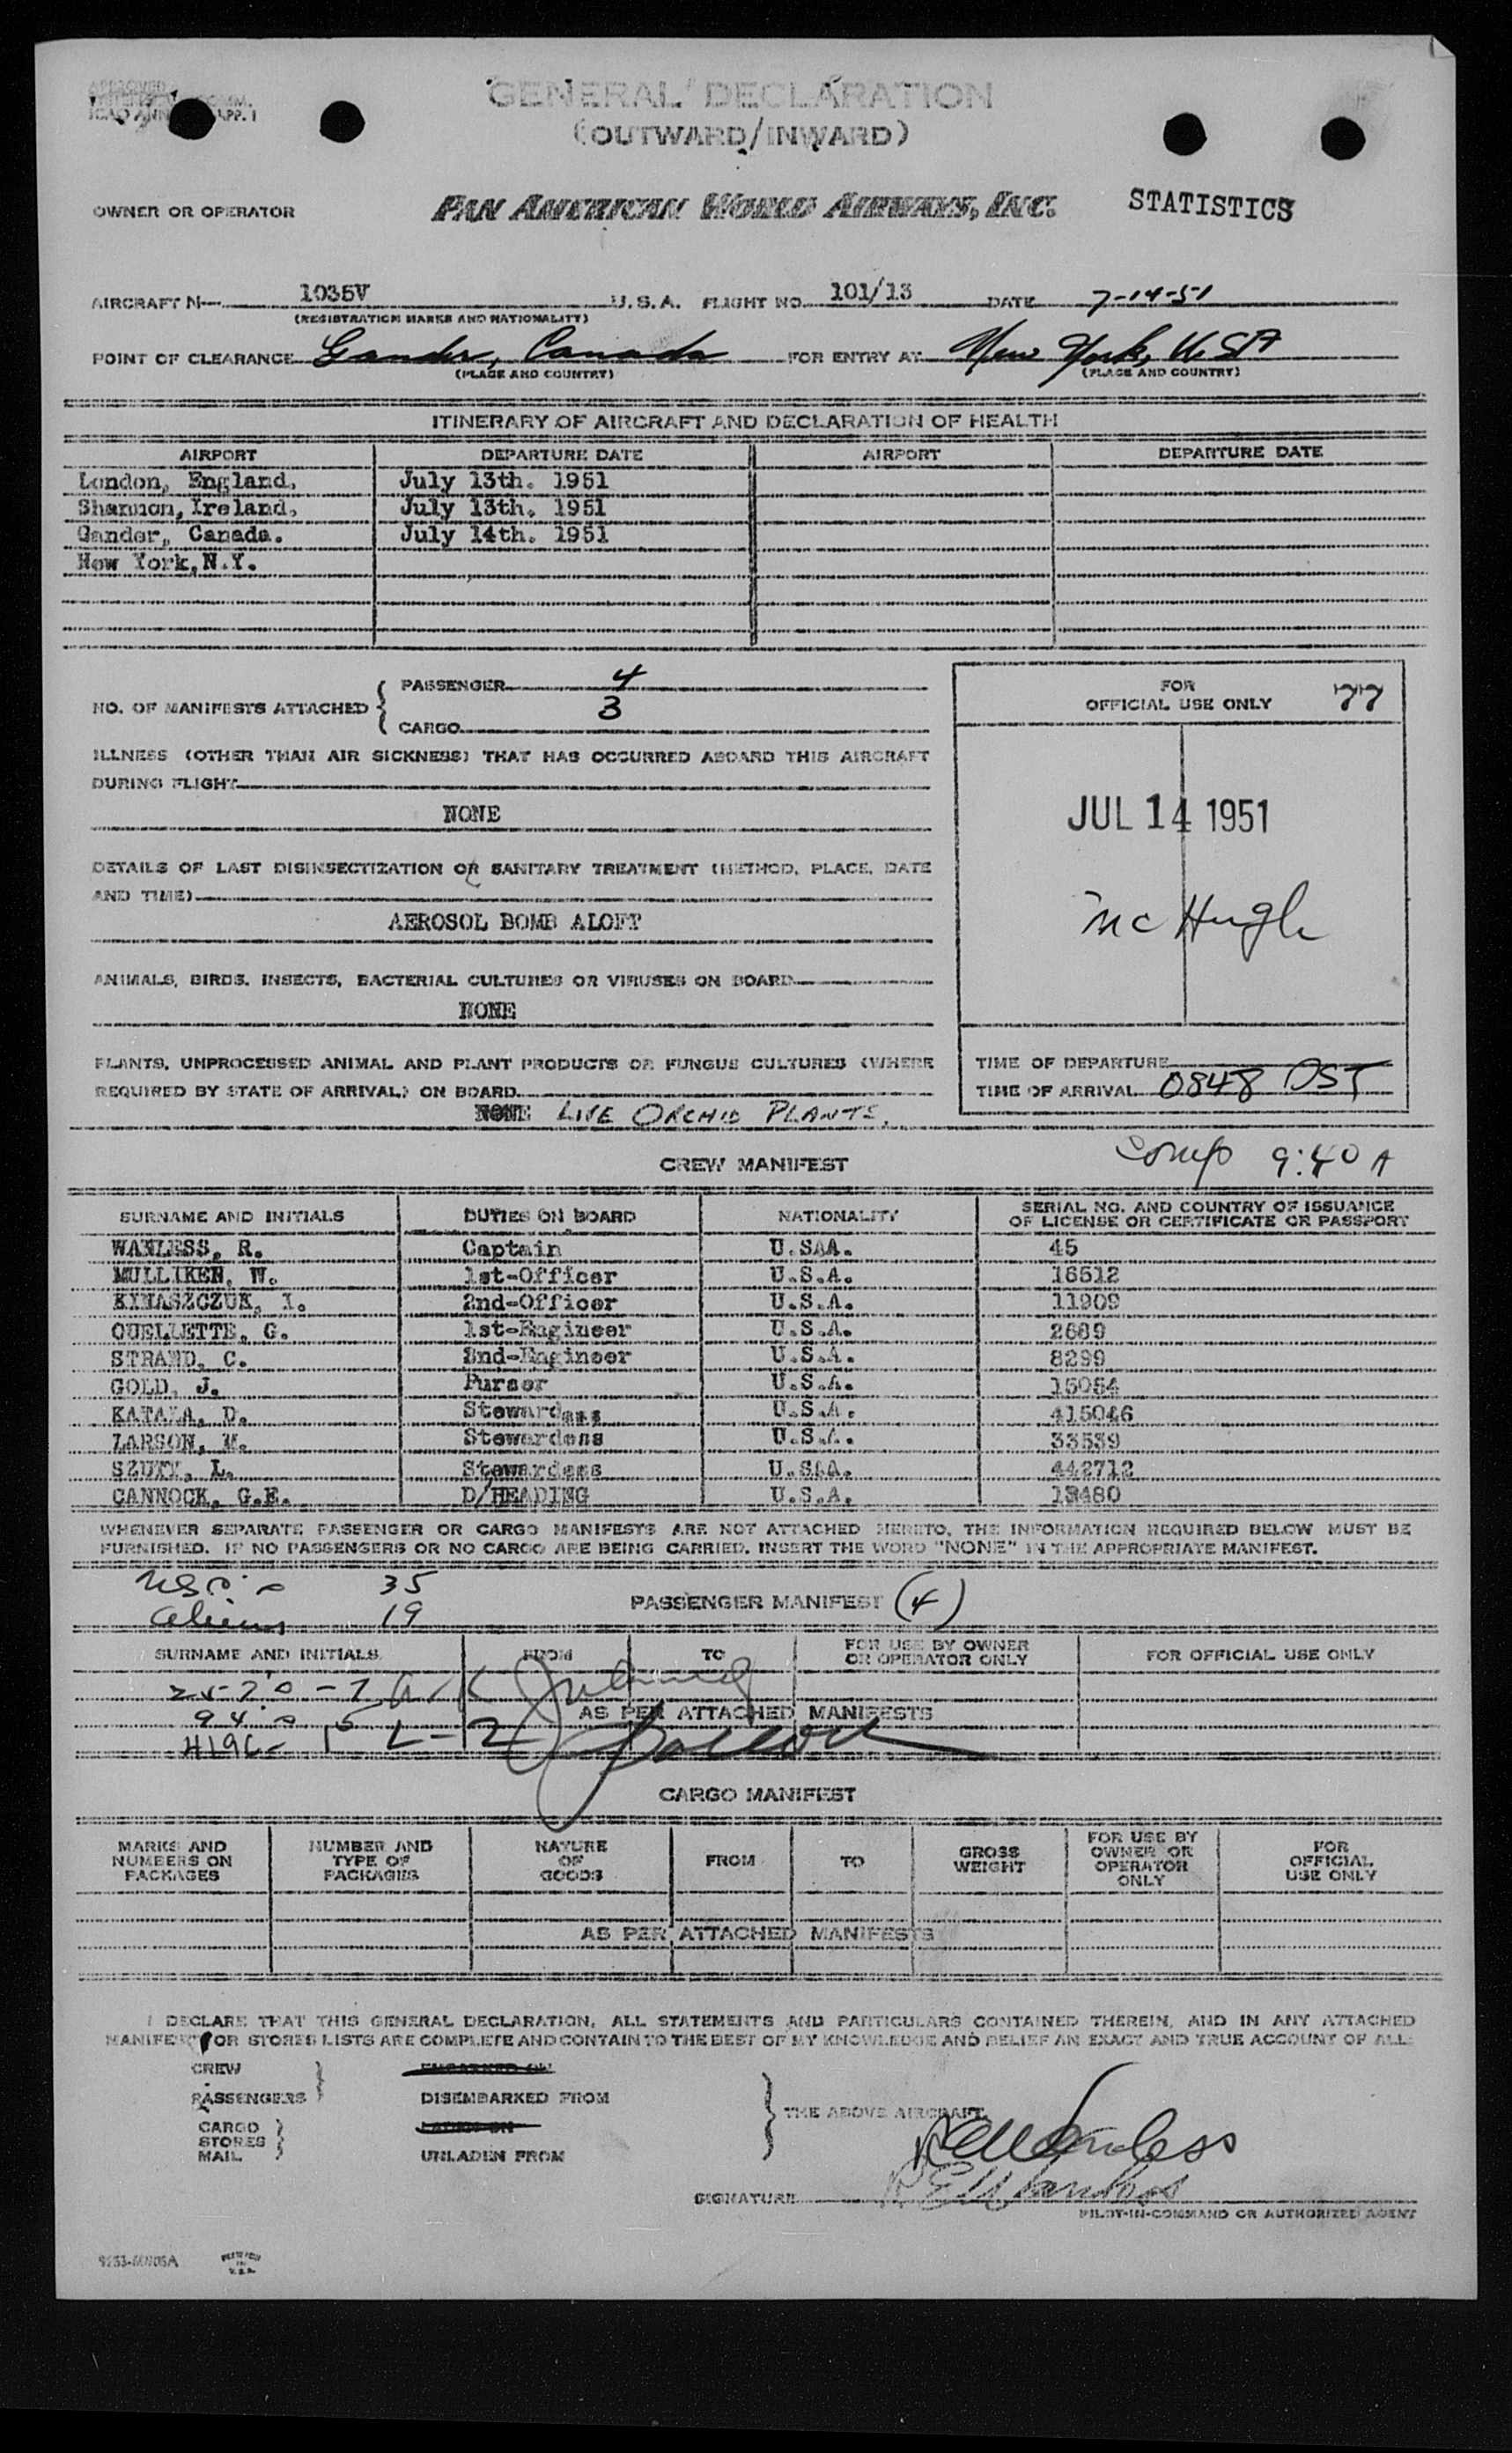 APPROVED
ICAO ANN APP. 1
GENERAL DECLARATION
(OUTWARD/INWARD)
OWNER OR OPERATOR PAN AMERICAN WORLD AIRWAYS, INC. STATISTICS
AIRCRAFT N— 1035V U.S.A. FLIGHT NO. 101/13 DATE 7-14-51
(REGISTRATION MARKS AND NATIONALITY)
POINT OF CLEARANCE Gander, Canada FOR ENTRY AT New York, USA
(PLACE AND COUNTRY) (PLACE AND COUNTRY)
ITINERARY OF AIRCRAFT AND DECLARATION OF HEALTH
AIRPORT DEPARTURE DATE AIRPORT DEPARTURE DATE
London, England. July 13th. 1951
Shannon, Ireland. July 13th. 1951
Gander, Canada. July 14th. 1951
New York, N.Y.
NO. OF MANIFESTS ATTACHED { PASSENGER 4
CARGO 3
FOR
OFFICIAL USE ONLY 77
ILLNESS (OTHER THAN AIR SICKNESS) THAT HAS OCCURRED ABOARD THIS AIRCRAFT
DURING FLIGHT
NONE
JUL 14 1951
DETAILS OF LAST DISINSECTIZATION OR SANITARY TREATMENT (METHOD, PLACE, DATE
AND TIME)
AEROSOL BOMB ALOFT
McHugh
ANIMALS, BIRDS, INSECTS, BACTERIAL CULTURES OR VIRUSES ON BOARD
NONE
PLANTS, UNPROCESSED ANIMAL AND PLANT PRODUCTS OR FUNGUS CULTURES (WHERE
REQUIRED BY STATE OF ARRIVAL) ON BOARD
NONE LIVE ORCHID PLANTS.
TIME OF DEPARTURE
TIME OF ARRIVAL 0848 DST
Comp 9:40 A
CREW MANIFEST
SURNAME AND INITIALS DUTIES ON BOARD NATIONALITY SERIAL NO. AND COUNTRY OF ISSUANCE
OF LICENSE OR CERTIFICATE OR PASSPORT
WANLESS, R. Captain U.S.A. 45
MULLIKEN, W. 1st-Officer U.S.A. 16512
KIHASZCZUK, I. 2nd-Officer U.S.A. 11909
OUELLETTE, G. 1st-Engineer U.S.A. 2689
STRAND, C. 2nd-Engineer U.S.A. 8299
GOLD, J. Purser U.S.A. 15054
D. Stewardess U.S.A. 415046
LARSON, M. Stewardess U.S.A. 33539
L. Stewardess U.S.A. 442712
CANNOCK, G.E. D/HEADING U.S.A. 13480
WHENEVER SEPARATE PASSENGER OR CARGO MANIFESTS ARE NOT ATTACHED HERETO, THE INFORMATION REQUIRED BELOW MUST BE
FURNISHED. IF NO PASSENGERS OR NO CARGO ARE BEING CARRIED, INSERT THE WORD "NONE" IN THE APPROPRIATE MANIFEST.
35
Aliens 19
PASSENGER MANIFEST (4)
SURNAME AND INITIALS FROM TO FOR USE BY OWNER
OR OPERATOR ONLY FOR OFFICIAL USE ONLY
AS PER ATTACHED MANIFESTS
CARGO MANIFEST
MARKS AND
NUMBERS ON
PACKAGES
NUMBER AND
TYPE OF
PACKAGES
NATURE
OF
GOODS
FROM
TO
GROSS
WEIGHT
FOR USE BY
OWNER OR
OPERATOR
ONLY
FOR
OFFICIAL
USE ONLY
AS PER ATTACHED MANIFESTS
I DECLARE THAT THIS GENERAL DECLARATION, ALL STATEMENTS AND PARTICULARS CONTAINED THEREIN, AND IN ANY ATTACHED
MANIFEST OR STORES LISTS ARE COMPLETE AND CONTAIN TO THE BEST OF MY KNOWLEDGE AND BELIEF AN EXACT AND TRUE ACCOUNT OF ALL:
CREW EMBARKED ON
PASSENGERS DISEMBARKED FROM
THE ABOVE AIRCRAFT.
CARGO LADEN ON
STORES
MAIL UNLADEN FROM
R E Wanless
SIGNATURE R E Wanless
PILOT-IN-COMMAND OR AUTHORIZED AGENT
PRINTED
IN
U.S.A.